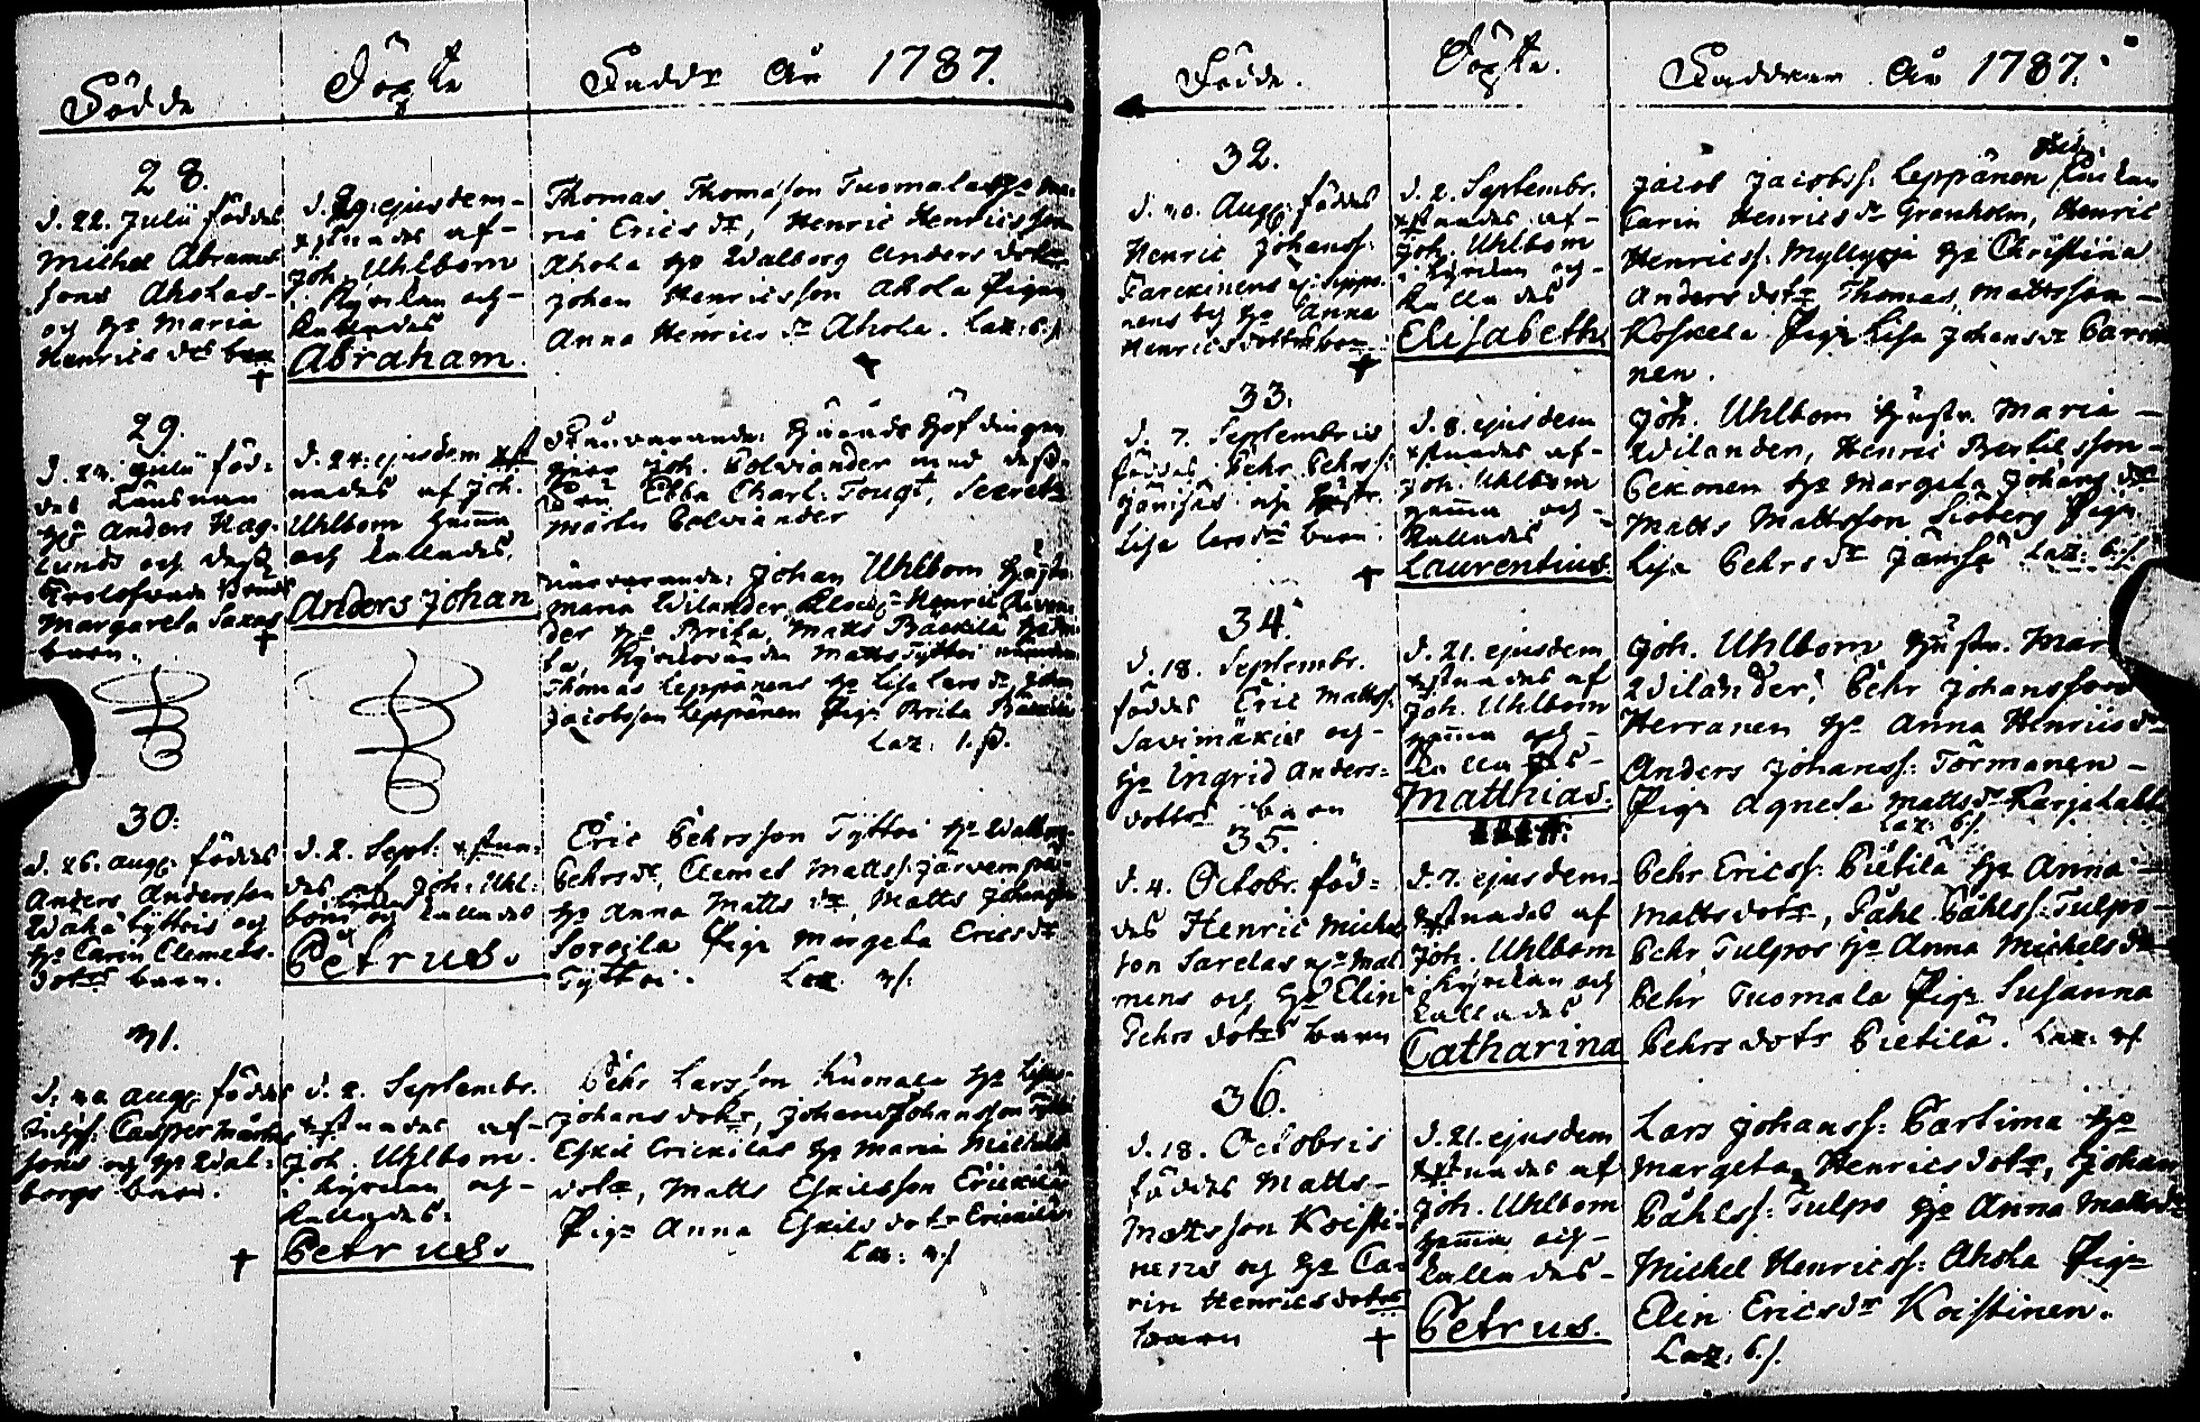 Födde
Döpte
Faddr År 1787.
28.
d. 22. Julii föddes
Michel Abrams
sons Aholas
och h:o Maria
Henrics dr barn
d. 29. ejusdem
xstnades af
Joh. Uhlbom
i Kyrckan och
kallades
Abraham.
Thomas Thomasson Tuomala h:o Ma-
ria Erics dr, Henric Henricsson
Ahola h:o Walborg Anders dotter
Johan Henricsson Ahola Pigan
Anna Henrics dr Ahola. Laz: 6 s.
29.
d. 24. Julii föd-
des Länsman
Anders Hag-
lunds och dess
Trolofvade
Margareta Saxas
barn.
d. 24. ejusdem xst
nades af Joh.
Uhlbom hemma
och kallades.
Anders Johan
Frånvarande: Härads Höfdingen
Joh. Colviander med dess
Fru Ebba Charl: Tougt, Secret:
Martin Colviander
närvarande: Johan Uhlbom Hustr.
Maria Wilander, Henric
der h:o Brita, Matts Backila
ta, Kyrcovärden Matts Tyttoi
Thomas Leppänens h:o Lisa Lars dr, Johan
Jacobsson Leppänen Pig: Brita Backila
Laz: 1. d.
30.
d. 26. aug: föddes
Anders Andersson
Wähä tyttois och
h:o Carin Clemets-
doters barn.
d. 2. Sept: xstna-
des af Joh: Uhl-
bom och kallades
Petrus.
Eric Pehrsson Tyttoi h:o Walborg
Pehrs dr, Clemet Mattss: Järvempä
h:o Anna Matts dr, Matts Johansson
Soroila Pig: Margeta Erics dr
Tyttoi. Laz. 4 s.
31.
d. 30 aug: föddes
Casper Mårtens
sons och h:o Wal-
borgs barn.
d. 2. Septembr.
xstnades af
Joh. Uhlbom.
i Kyrckan och
kallades.
Petrus.
Pehr Larsson Kuonala h:o Lisa
Johans dotr, Johan Johansson
Eskil Erickiläs h:o Maria Michels
dotr, Matts Eskilsson Erickilä
Pig: Anna Eskils dotr Erickilä.
Laz: 4 s.
Födde.
Döpte.
Faddrar År 1787.
32.
d. 30. Aug: föddes
Henric Johanss:
Farckinens
h:o Anna
Henricsdotters barn.
d. 2. Septembr.
xstnades af
Joh. Uhlbom
i Kyrckan och
kallades
Elisabeth.
Jacob Jacobss: Leppänen
Carin Henrics dr Granholm, Henric
Henricss: Myllyoja h:o Christina
Anders dotr, Thomas Mattsson
Koskela Pig: Lisa Johans dr Parni
nen.
33.
d. 7. Septembris
föddes Pehr Pehrss:
Jänisäs och Hustr.
Lisa Lars dr barn.
d. 8. ejusdem
xstnades af
Joh. Uhlbom
hemma och
kallades
Laurentius.
Joh. Uhlbom Hustr. Maria
Wilander, Henric Bertilsson
Pekonen h:o Margeta Johans dr
Matts Mattsson Siöberg Pig:
Lisa Pehrs dr Jänisä Laz: 6 s.
34.
d. 18. Septembr.
föddes Eric Mattss:
Savimäkis och
h:o Ingrid Anders-
dotters barn
d. 21. ejusdem
xstnades af
Joh. Uhlbom
hemma och
kallades
Matthias.
Joh. Uhlbom Hustr. Mar
Wilander, Pehr Johansson
Herranen h:o Anna Henrics dr
Anders Johanss: Törmänen
Pig: Agneta Matts dr Karjalahti
Laz: 6 s.
35.
d. 4. Octobr. föd-
des Henric Michel
son Sarelas
nens och h:o Elin
Pehrs doters barn
d. 7. ejusdem
xstnades af
Joh. Uhlbom
i Kyrckan och
kallades
Catharina
Pehr Ericss: Pietilä h:o Anna
Matts dotr, Påhl Påhlss: Tulpo
Pehr Tulpos h:o Anna Michels dr
Pehr Tuomala Pig: Susanna
Pehrs dotr Pietilä. Laz: 4 s.
36.
d. 18. Octobris
föddes Matts
Mattsson Koisti-
nens och h:o Ca-
rin Henricsdoters
barn
d. 21. ejusdem
xstnades af
Joh. Uhlbom
hemma och
kallades
Petrus.
Lars Johanss: Partima h:o
Margeta Henrics dotr, Johan
Påhlss: Tulpo h:o Anna Matts dr
Michel Henricss: Ahola Pig:
Elin Erics dr Koistinen.
Laz: 6 s.